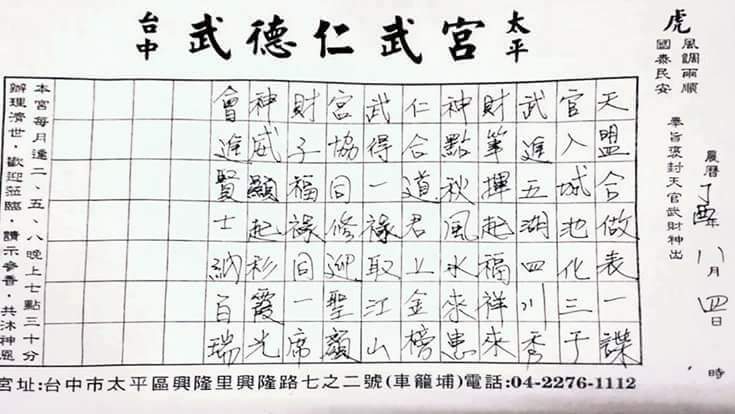 台中 武德仁武宮 太平
虎
風調雨順
國泰民安
奉旨褒封天官武財神出
農曆丁酉年八月四日 時
天盟合做表一諜
官入城池化三千
武進五湖四川秀
財筆揮起福祥來
神點秋風水來患
仁合道君上金榜
武得一祿取江山
宮協同修迎聖顏
財子福祿同一席
神威顯起彩霞光
會進賢士納百瑞
本宮每月逢二、五、八晚上七點三十分
辦理濟世，歡迎蒞臨，請示參香，共沐神恩
宮址:台中市太平區興隆里興隆路七之二號(車籠埔)電話:04-2276-1112